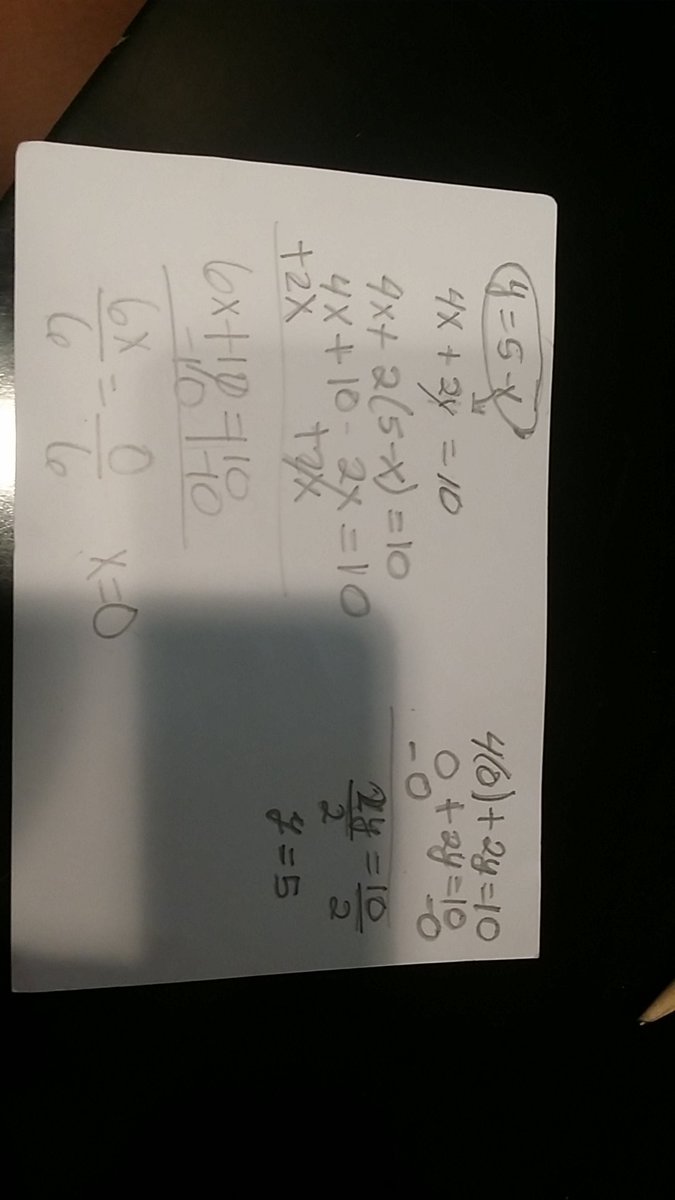 y = 5 - x
4x + 2y = 10
4x + 2(5-x) = 10
4x + 10 - 2x = 10
+2x +2x
6x + 10 = 10
-10 -10
6x = 0
6 6
x = 0
4(0) + 2y = 10
0 + 2y = 10
-0 -0
2y = 10
2 2
y = 5